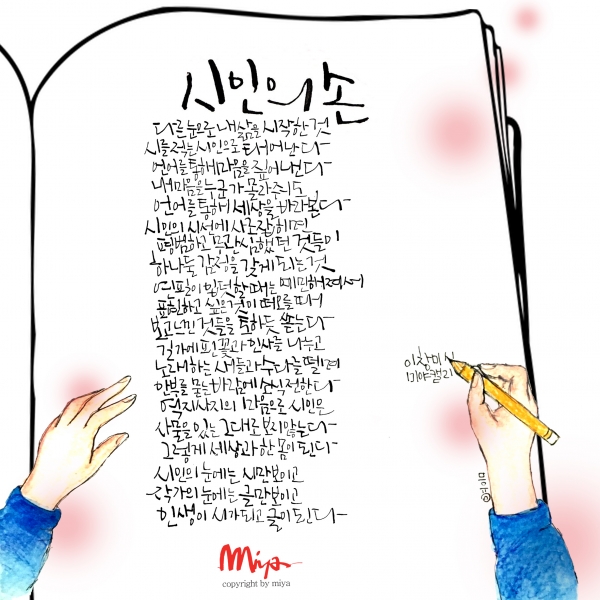 시인의 손
다른 눈으로 내 삶을 시작한 것
시를 적는 시인으로 태어난다
언어를 통해 마음을 짚어낸다
내 마음을 누군가 몰라주어도
언어를 통해 세상을 바라본다
시인의 시선에 사로잡히면
평범하고 무관심했던 것들이
하나둘 감정을 갖게 되는 것
연필이 입덧할 때는 예민해져서
표현하고 싶은 것이 떠오를 때
보고 느낀 것들을 토하듯 쓴는다
길가에 핀 꽃과 인사를 나누고
노래하는 새들과 수다를 떨며
안부를 묻는 바람에 소식 전한다
역지사지의 마음으로 시인은
사물을 있는 그대로 보지 않는다
그렇게 세상과 한 몸이 된다
시인의 눈에는 시만 보이고
작가의 눈에는 글만 보이고
인생이 시가 되고 글이 된다
이창미 시
미야캘리
미야©
Miya
copyright by miya